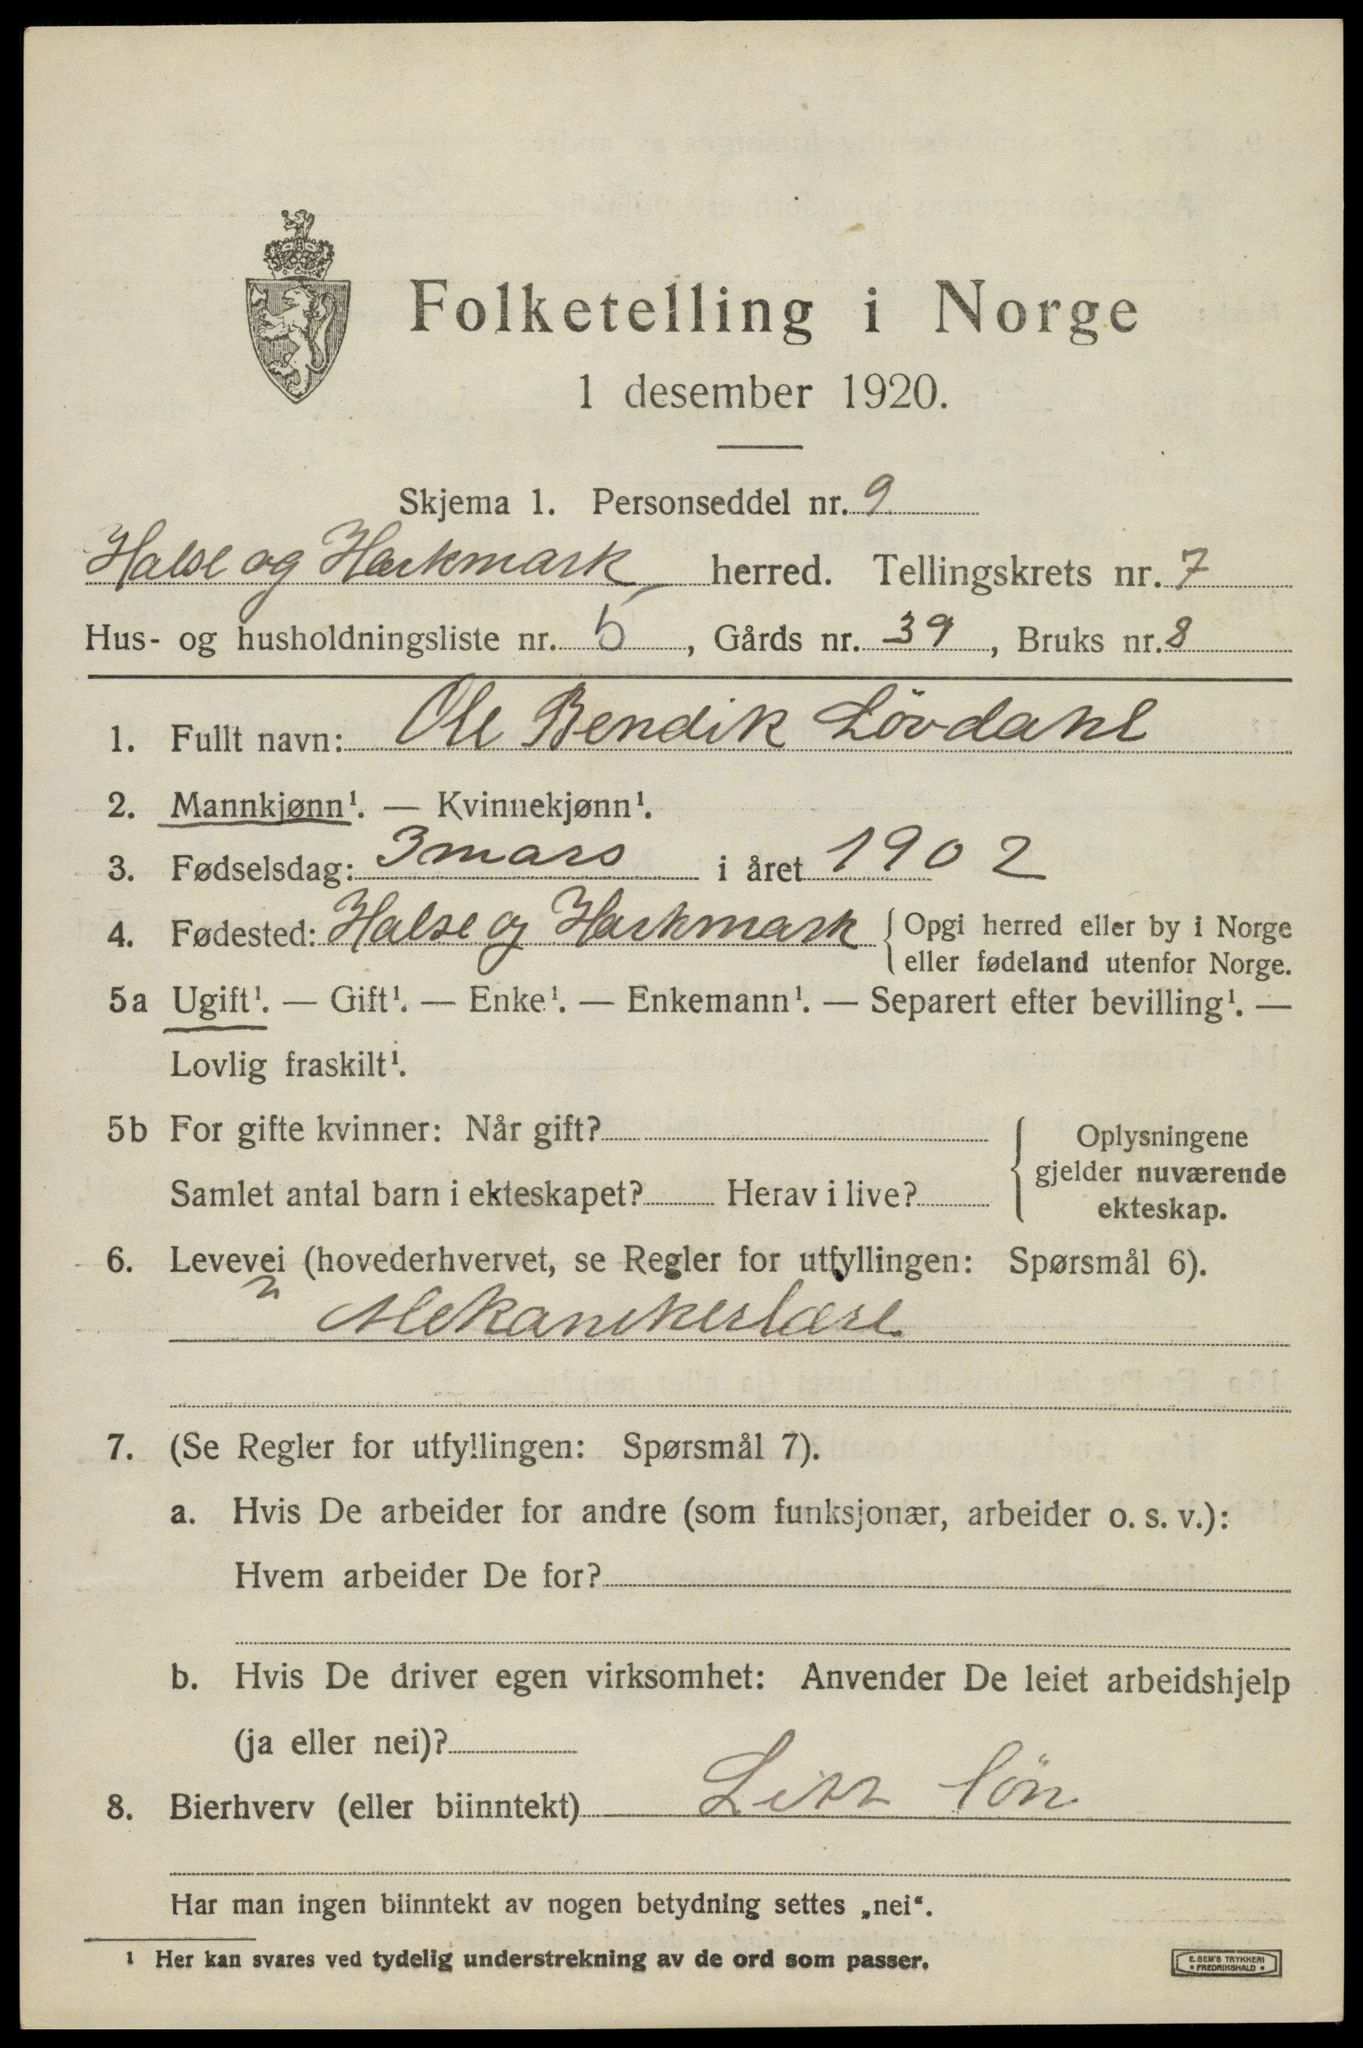 Folketelling i Norge
1 desember 1920.
Skjema 1. Personseddel nr. 9
Halse og Harkmark herred. Tellingskrets nr. 7
Hus- og husholdningsliste nr. 5, Gårds nr. 39, Bruks nr. 8
1. Fullt navn: Ole Bendik Lövdahl
2. Mannkjønn¹. — Kvinnekjønn¹.
3. Fødselsdag: 3 mars i året 1902
4. Fødested: Halse og Harkmark { Opgi herred eller by i Norge
eller fødeland utenfor Norge.
5a Ugift¹. — Gift¹. — Enke¹. — Enkemann¹. — Separert efter bevilling¹. —
Lovlig fraskilt¹.
5b For gifte kvinner: Når gift?
Samlet antal barn i ekteskapet? Herav i live?
{ Oplysningene
gjelder nuværende
ekteskap.
6. Levevei (hovederhvervet, se Regler for utfyllingen: Spørsmål 6).
Mekanikerlære
7. (Se Regler for utfyllingen: Spørsmål 7).
a. Hvis De arbeider for andre (som funksjonær, arbeider o. s. v.):
Hvem arbeider De for?
b. Hvis De driver egen virksomhet: Anvender De leiet arbeidshjelp
(ja eller nei)?
8. Bierhverv (eller biinntekt) lön
Har man ingen biinntekt av nogen betydning settes „nei“.
¹ Her kan svares ved tydelig understrekning av de ord som passer.
E. SEM'S TRYKKERI
• FREDRIKSHALD •